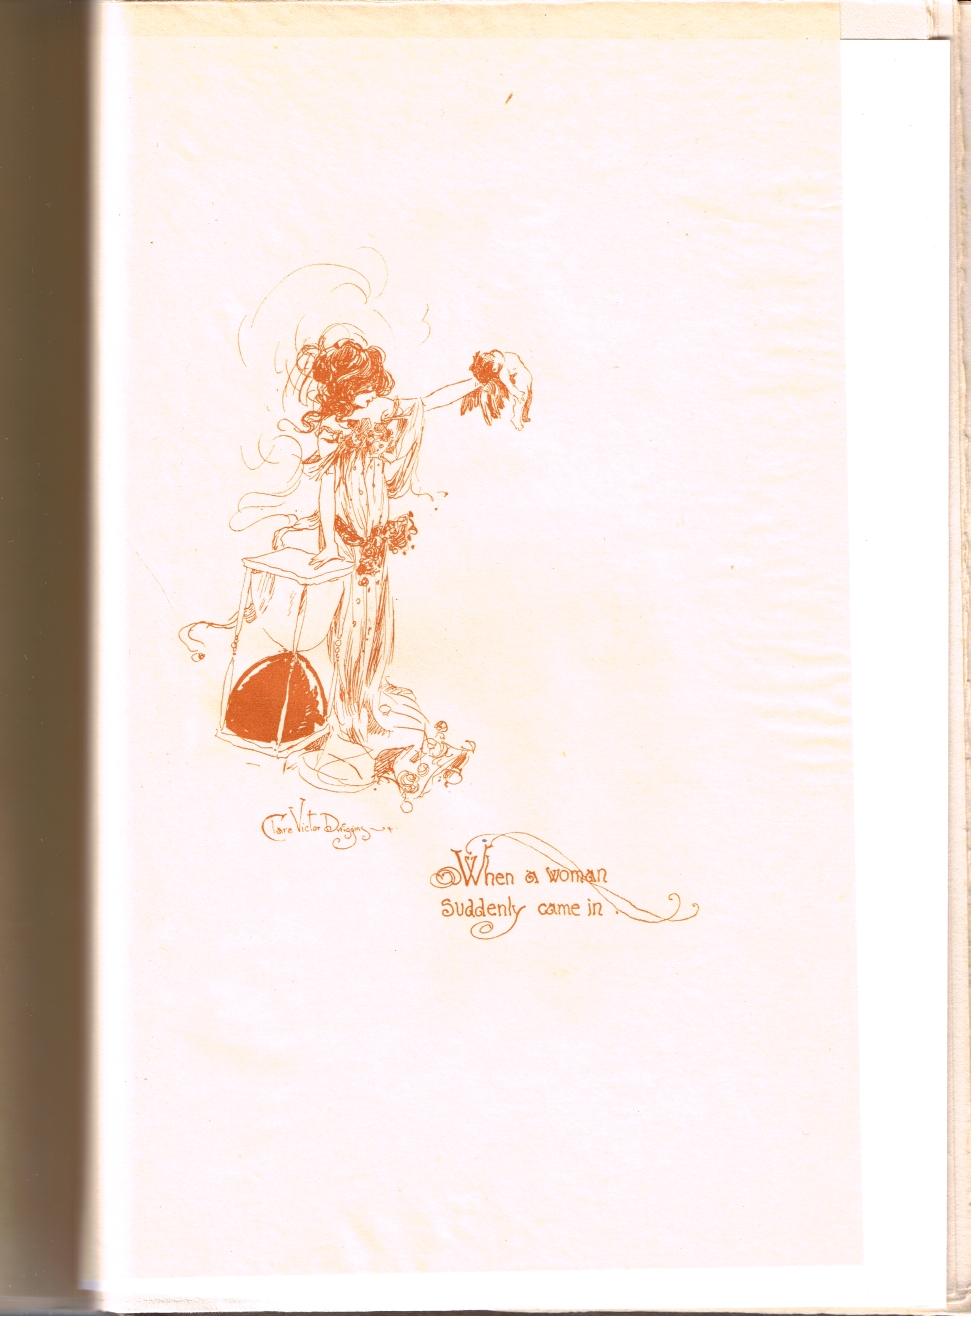 Clare Victor Dwiggins
When a woman
Suddenly came in .